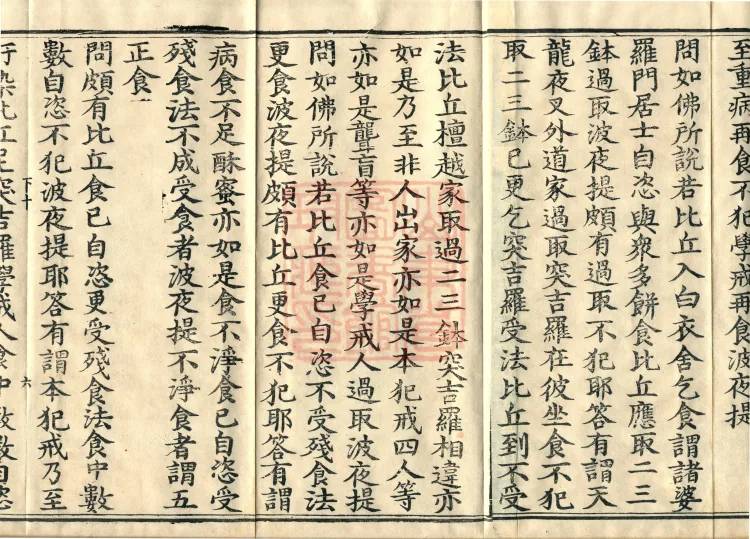 至重病再食不犯學戒再食波夜提
問如佛所說若比丘入白衣舍乞食謂諸婆
羅門居士自恣與衆多餅食比丘應取二三
鉢過取波夜提頗有過取不犯耶答有謂天
龍夜叉外道家過取突吉羅在彼坐食不犯
取二三鉢已更乞突吉羅受法比丘到不受
法比丘檀越家取過二三鉢突吉羅相違亦
如是乃至非人出家亦如是本犯戒四人等
亦如是聾盲等亦如是學戒人過取波夜提
問如佛所說若比丘食已自恣不受殘食法
更食波夜提頗有比丘更食不犯耶答有謂
病食不足酥蜜亦如是食不淨食已自恣受
殘食法不成受食者波夜提不淨食者謂五
正食
問頗有比丘食已自恣更受殘食法食中數
數自恣不犯波夜提耶答有謂本犯戒乃至
汙染比丘尼突吉羅學戒人食中數數自恣
下十
六